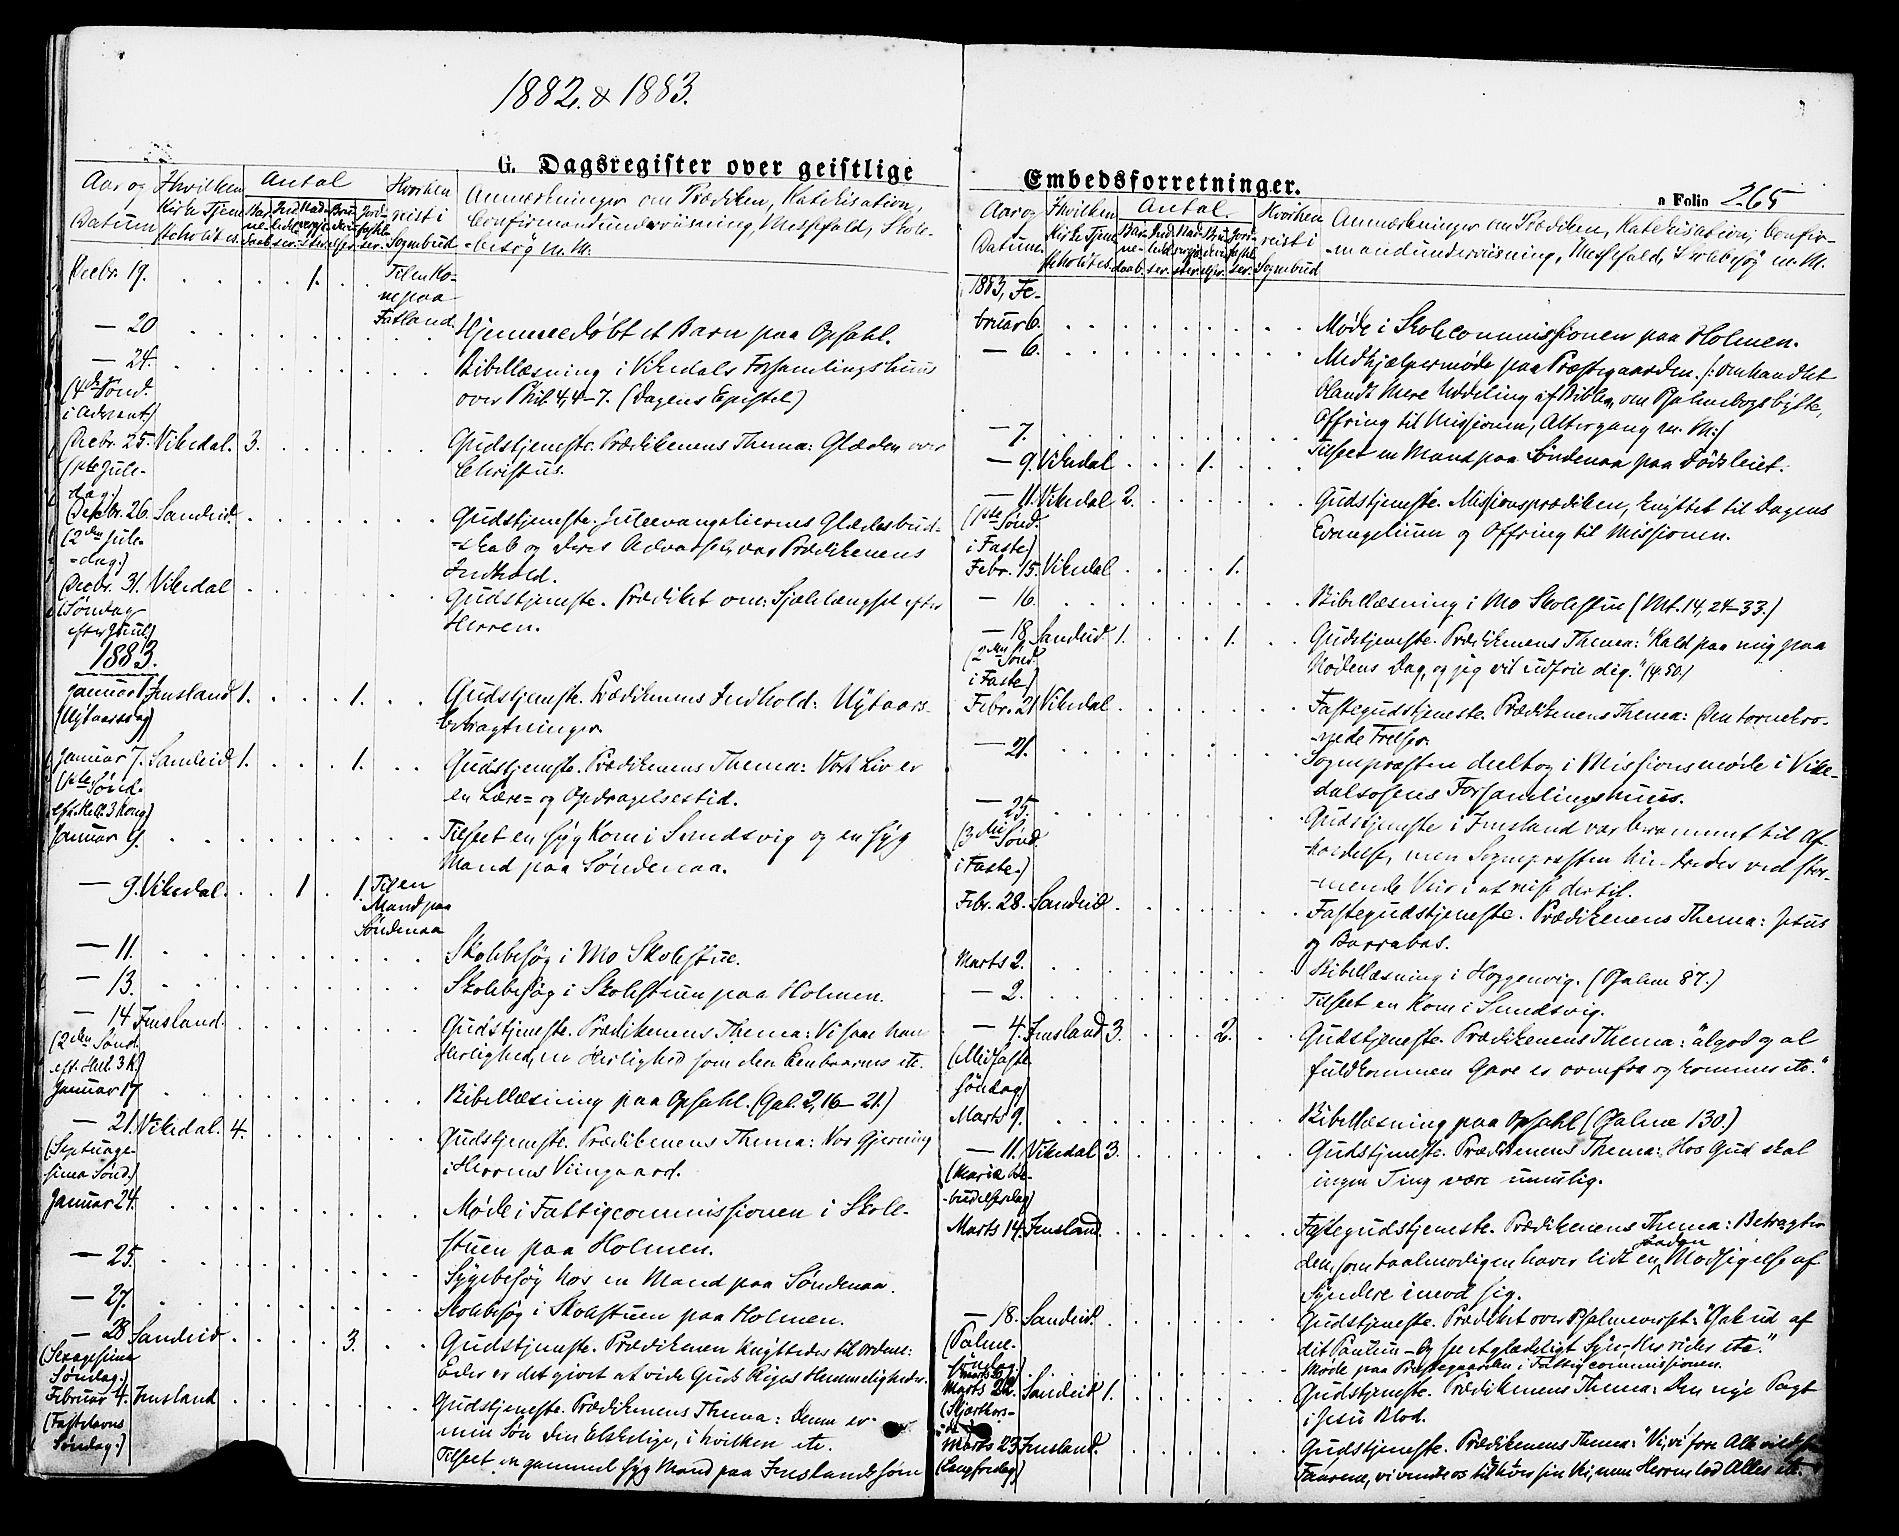 1882 & 1883.
G. Dagsregister over geistlige
Aar og
Datum
Ihvilken
Kirke Tjene-
ste holdtes.
Antal
Hvorhen
reist i
Sognebud
Anmærkninger om Prædiken, Katekisation,
Confirmandundervisning, Messefald, Skole-
-besøg m. M.
Decbr. 19. 1. Til en Ko-
ne paa
Fatland.
— 20 Hjemmedøbt et Barn paa Opsahl.
— 24. Bibellæsning i Vikedals Forsamlingshuus
(4de Sønd. over Phil. 4, 4-7. (Dagens Epistel)
i Advent)
Decbr. 25. Vikedal. 3. Gudstjeneste. Prædikenens Thema: Glæden over
(1ste Jule- Christus.
dag.)
Decbr. 26. Sandeid. Gudstjeneste. Juleevangeliernes Glædesbud-
(2den Jule- -skab og deres Advarsel, var Prædikenens
-dag.) Indhold.
Decbr. 31. Vikedal Gudstjeneste. Prædiket om: Sjælelængsel efter
(Søndag Herren.
efter Juul)
1883.
Januar 1. Imsland. 1. 1. Gudstjeneste. Prædikenens Indhold: Nytaars-
(Nytaarsdag) betragtninger.
Januar 7. Sandeid. 1. 1. Gudstjeneste. Prædikenens Thema: Vort Liv er
(1ste Sønd. en Lære- og Opdragelsestid.
eft. Hell. 3 Kong.)
Januar 9. Tilseet en syg Kone i Sundsvig og en syg
Mand paa Søndenaa.
— 9. Vikedal. 1 1. Til en
Mand paa
Søndenaa
— 11. Skolebesøg i Mo Skolestue.
— 13. Skolebesøg i Skolestuen paa Holmen.
— 14 Imsland. Gudstjeneste. Prædikenens Thema: Vi saae hans
(2den Sønd. Herlighed, en Herlighed som den Eenbaarnes etc.
eft. Hell. 3 K.)
Januar 17 Bibellæsning paa Opsahl. (Gal. 2, 16-21.)
— 21. Vikedal. 4. Gudstjeneste. Prædikenens Thema: Vor Gjerning
(Septuage- i Herrens Viingaard.
sima Sønd.)
Januar 24. Møde i Fattigcommissionen i Skole-
stuen paa Holmen.
— 25. Sygebesøg hos en Mand paa Søndenaa.
— 27. Skolebesøg i Skolestuen paa Holmen.
— 28 Sandeid 3. Gudstjeneste. Prædikenen knyttedes til Ordene:
(Sexagesima Eder er det givet at vide Guds Riges Hemmeligheder.
Søndag.)
Februar 4. Imsland Gudstjeneste. Prædikenens Thema: Denne er
(Fastelavns min Søn den Elskelige, i hvilken etc.
Søndag.) Tilseet en gammel syg Mand paa Imslandssjøen
Embedsforretninger.
a Folio 265
Aar og
Datum.
Ihvilken
Kirke Tjene-
ste holdtes.
Antal.
Hvorhen
reist i
Sognebud
Anmærkninger om Prædiken, Katekisation, Confir-
-mandundervisning, Messefald, Skolebesøg m. M.
1883, Fe-
bruar 6. Møde i Skolecommissionen paa Holmen.
— 6. Medhjælpermøde paa Præstegaarden. (: omhandlet
blandt Mere Uddeling af Bibler, om Psalmebogsbytte,
Offring til Missionen, Altergang m. M:)
— 7. Tilseet en Mand paa Søndenaa paa Dødsleiet.
— 9. Vikedal 1.
— 11. Vikedal 2. Gudstjeneste. Missionsprædiken, knyttet til Dagens
(1ste Sønd. Evangelium og Offring til Missionen.
i Faste)
Febr. 15. Vikedal 1.
— 16. Bibellæsning i Mo Skolestue (Mt. 14, 24-33.)
— 18 Sandeid. 1. 1. Gudstjeneste. Prædikenens Thema: "Kald paa mig paa
(2den Sønd. Nødens Dag, og jeg vil udfrie dig." (4. 50.)
i Faste)
Febr. 21 Vikedal Fastegudstjeneste. Prædikenens Thema: Den tornekro-
-nede Frelser.
— 21. Sognepræsten deeltog i Missionsmøde i Vike-
dalsosens Forsamlingshuus.
— 25. Gudstjeneste i Imsland var berammet til Af-
(3die Sønd. holdelse, men Sognepræsten hindredes ved stor-
i Faste.) -mende Veir i at reise dertil.
Febr. 28. Sandeid Fastegudstjeneste. Prædikenens Thema: Jesus
og Barrabas.
Marts 2. Bibellæsning i Hoggenvig. (Psalme 87.)
— 2. Tilseet en Kone i Sundsvig.
— 4. Imsland 3. 2. Gudstjeneste. Prædikenens Thema: "al god og al
(Midfaste fuldkommen Gave er ovenfra og kommer etc."
Søndag)
Marts 9. Bibellæsning paa Opsahl (Psalme 130.)
— 11. Vikedal 3. Gudstjeneste. Prædikenens Thema: Hos Gud skal
(Mariæ Be- ingen Ting være umulig.
-budelsesdag)
Marts 14. Imsland. Fastegudstjeneste. Prædikenens Thema: Betragter
den, som taalmodigen haver lidt en saadan Modsigelse af
Syndere imod sig.
— 18. Sandeid. Gudstjeneste. Prædiket over Psalmeverset: "Gak ud af
(Palme- dit Paulun – Og se et glædeligt Syn – Her rider etc."
Søndag)
Møde paa Præstegaarden i Fattigcommissionen.
Marts 22. Sandeid 1. Gudstjeneste. Prædikenens Thema: Den nye Pagt
(Skjærthors- i Jesu Blod.
Marts 23 Imsland. Gudstjeneste. Prædikenens Thema: "Vi, vi fore Alle vild som
(Langfredag) Faarene, vi vendte os til hver sin Vei, men Herren lod Alles etc.